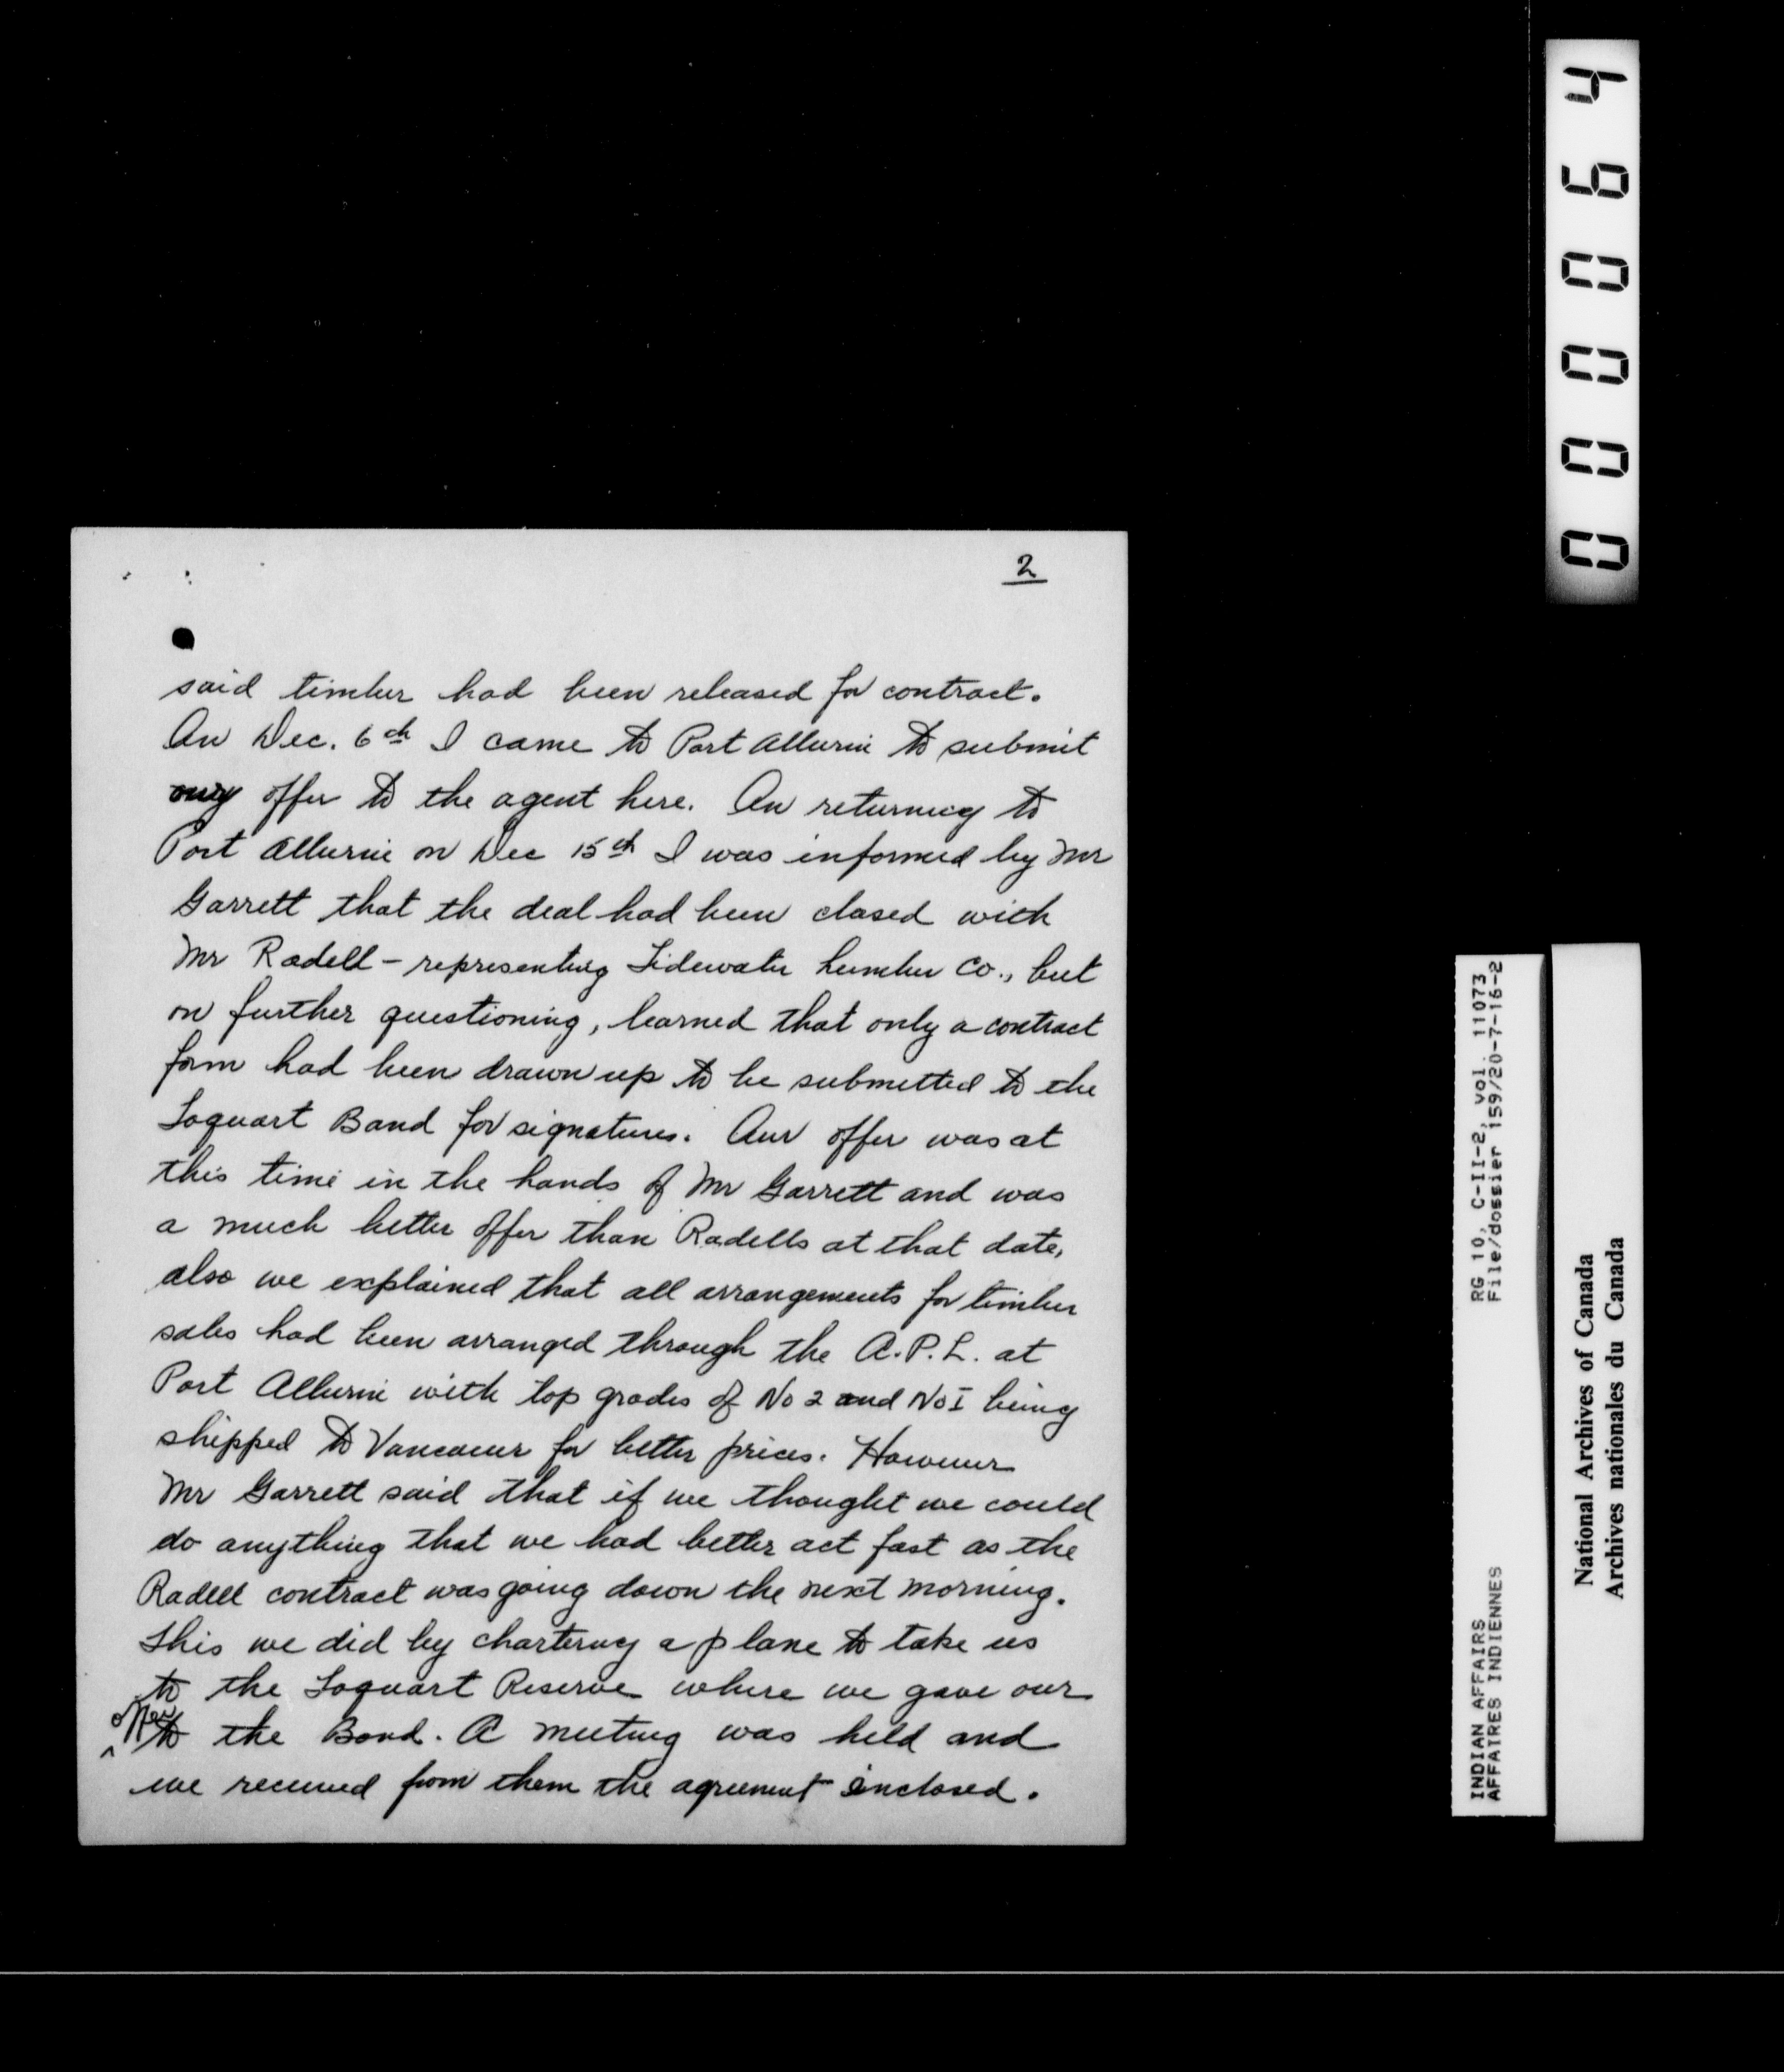 2
said timber had been released for contract.
On Dec. 6th I came to Port Alberni to submit
my offer to the agent here. On returning to
Port Alberni on Dec 15th I was informed by Mr
Garrett that the deal had been closed with
Mr Radell - representing Tidewater Lumber Co., but
on further questioning, learned that only a contract
form had been drawn up to be submitted to the
Toquart Band for signatures. Our offer was at
this time in the hands of Mr Garrett and was
a much better offer than Radells at that date,
also we explained that all arrangements for timber
sales had been arranged through the A.P.L. at
Port Alberni with top grades of No 2 and No I being
shipped to Vancouver for better prices. However
Mr Garrett said that if we thought we could
do anything that we had better act fast as the
Radell contract was going down the next morning.
This we did by chartering a plane to take us
to the Toquart Reserve where we gave our
offer to the Band. A meeting was held and
we received from them the agreement enclosed.
000064
RG 10, C-II-2, vol. 11073
File/dossier 159/20-7-16-2
INDIAN AFFAIRS
AFFAIRES INDIENNES
National Archives of Canada
Archives nationales du Canada